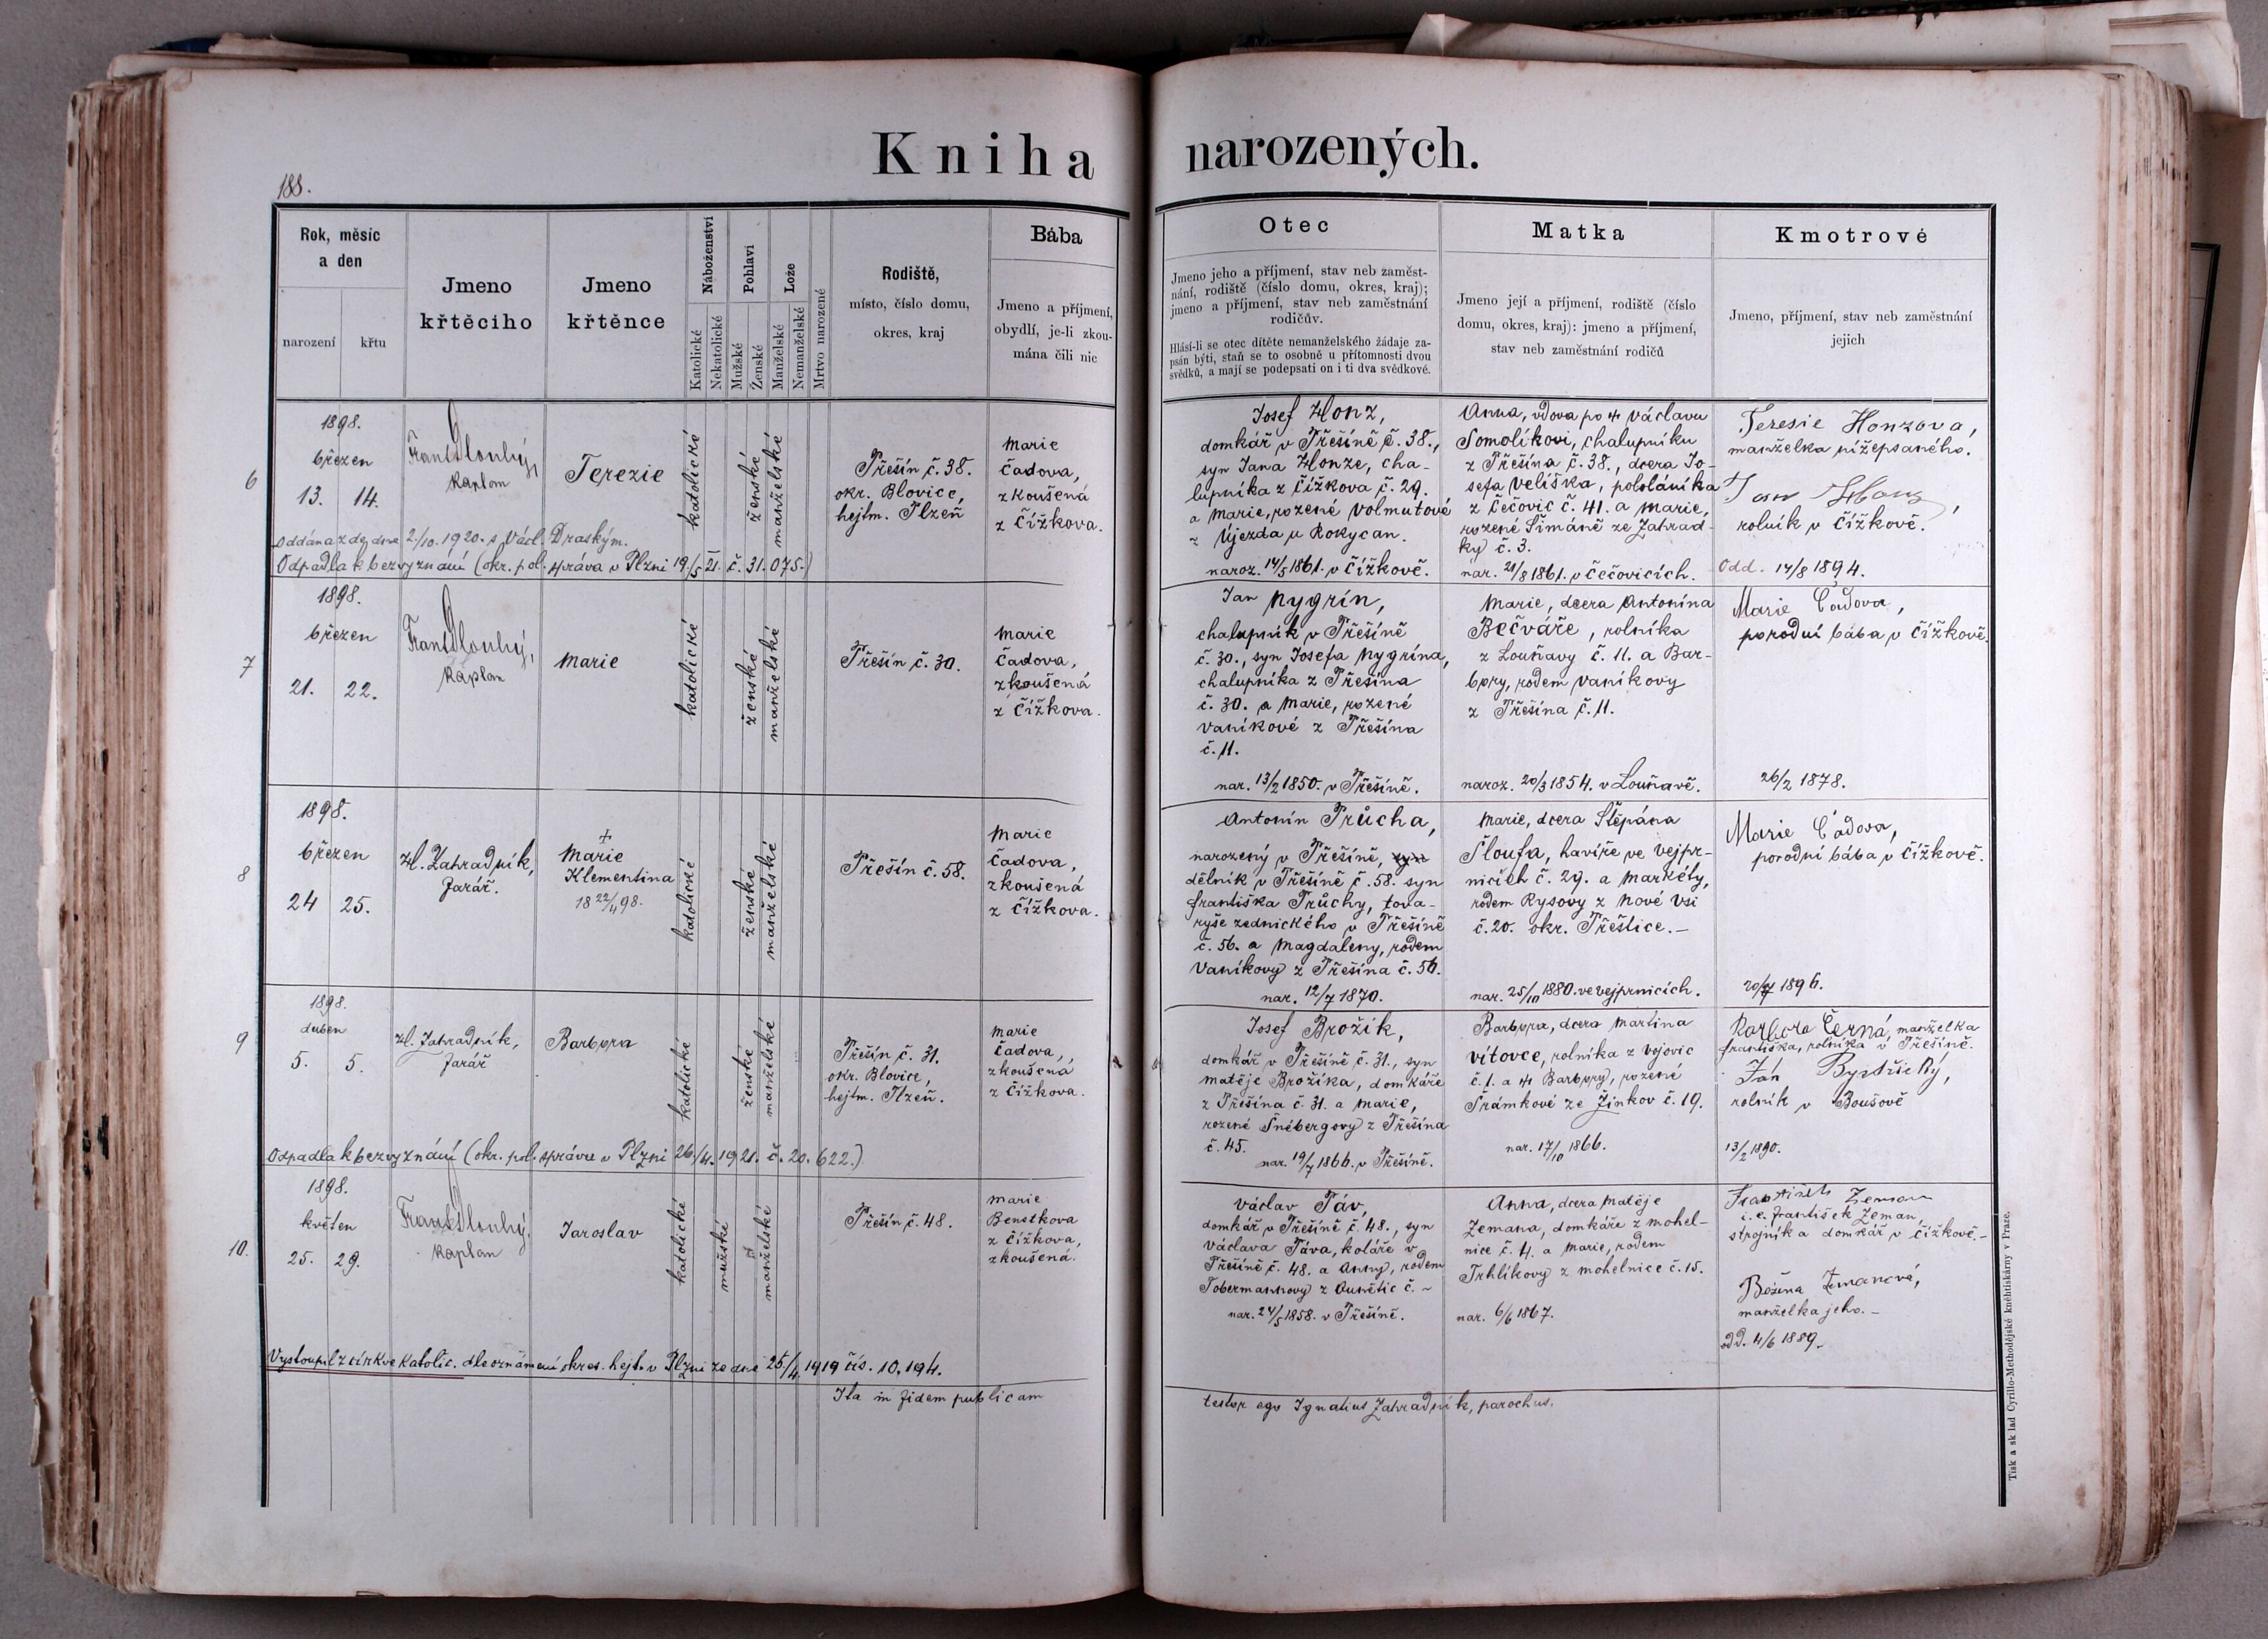 188.
Kniha narozených.
Rok, měsíc
a den
narození
křtu
Jmeno
křtěcího
Jmeno
křtěnce
Náboženství
Katolické
Nekatolické
Pohlaví
Mužské
Ženské
Lože
Manželské
Nemanželské
Mrtvo narozené
Rodiště,
místo, číslo domu,
okres, kraj
Bába
Jmeno a příjmení,
obydlí, je-li zkou-
mána čili nic
Otec
Jmeno jeho a příjmení, stav neb zaměst-
nání, rodiště (číslo domu, okres, kraj);
jmeno a příjmení, stav neb zaměstnání
rodičův.
Hlásí-li se otec dítěte nemanželského žádaje za-
psán býti, staň se to osobně u přítomnosti dvou
svědků, a mají se podepsati on i ti dva svědkové.
Matka
Jmeno její a příjmení, rodiště (číslo
domu, okres, kraj): jmeno a příjmení,
stav neb zaměstnání rodičů
Kmotrové
Jmeno, příjmení, stav neb zaměstnání
jejich
6
1898.
březen
13. 14.
Frant Dlouhý,
kaplan
Terezie
katolické
ženské
manželské
Třešín č. 38.
okr. Blovice,
hejtm. Plzeň
Marie
Čadova,
zkoušená
z Čížkova.
Josef Honz,
domkář v Třešíně č. 38.,
syn Jana Honze, cha-
lupníka z Čížkova č. 29.
a Marie, rozené Volmutové
z Újezda u Rokycan.
naroz. 14/5 1861. v Čížkově.
Anna, vdova po + Václavu
Somolíkovi, chalupníku
z Třešína č. 38., dcera Jo-
sefa Velíška, pololáníka
z Čečovic č. 41. a Marie,
rozené Šimáně ze Zahrad-
ky č. 3.
nar. 21/8 1861. v Čečovicích.
Teresie Honzova,
manželka nížepsaného.
Jan Honz,
rolník v Čížkově.
Odd. 14/8 1894.
Oddána z dne 2/10. 1920. s Václ. Draským.
Odpadla k bezvyznání (okr. pol. správa v Plzni 19/5 21. č. 31.075.)
7
1898.
březen
21. 22.
Frant Dlouhý,
kaplan
Marie
katolické
ženské
manželské
Třešín č. 30.
Marie
Čadova,
zkoušená
z Čížkova.
Jan Nygrín,
chalupník v Třešíně
č. 30., syn Josefa Nygrína,
chalupníka z Třešína
č. 30. a Marie, rozené
Vaníkové z Třešína
č. 11.
nar. 13/2 1850. v Třešíně.
Marie, dcera Antonína
Bečváře, rolníka
z Louňavy č. 11. a Bar-
bory, rodem Vaníkovy
z Třešína č. 11.
naroz. 20/3 1854. v Louňavě.
Marie Čadova,
porodní bába v Čížkově.
26/2 1878.
8
1898.
březen
24 25.
Zahradník,
farář.
+
Marie
Klementina
18 22/4 98.
katolické
ženské
manželské
Třešín č. 58.
Marie
Čadova,
zkoušená
z Čížkova.
Antonín Průcha,
narozený v Třešíně, syn
dělník v Třešíně č. 58. syn
Františka Průchy, tova-
ryše zednického v Třešíně
č. 56. a Magdaleny, rodem
Vaníkovy z Třešína č. 56.
nar. 12/7 1870.
Marie, dcera Štěpána
Šloufa, havíře ve Vejpr-
nicích č. 29. a Markéty,
rodem Rysovy z Nové Vsi
č. 20. okr. Přeštice. -
nar. 25/10 1880. ve Vejprnicích.
Marie Čadova,
porodní bába v Čížkově.
1896.
9
1898.
duben
5. 5.
Zahradník,
farář
Barbora
katolické
ženské
manželské
Třešín č. 31.
okr. Blovice,
hejtm. Plzeň.
Marie
Čadova,
zkoušená
z Čížkova.
Josef Brožík,
domkář v Třešíně č. 31., syn
Matěje Brožíka, domkáře
z Třešína č. 31. a Marie,
rozené Šnébergovy z Třešína
č. 45.
nar. 19/7 1866. v Třešíně.
Barbora, dcera Martina
Vítovce, rolníka z Vojovic
č. 1. a + Barbory, rozené
Šrámkové ze Žinkov č. 19.
nar. 17/10 1866.
Barbora Černá, manželka
Františka, rolníka v Třešíně.
Jan Bystřický,
rolník v Boušově
13/2 1890.
Odpadla k bezvyznání (okr. pol. správa v Plzni 26/4. 1921. č. 20.622.)
10.
1898.
květen
25. 29.
Frant Dlouhý,
kaplan
Jaroslav
katolické
mužské
manželské
Třešín č. 48.
Marie
Benstkova
z Čížkova,
zkoušená.
Václav Táv,
domkář v Třešíně č. 48., syn
Václava Táva, koláře v
Třešíně č. 48. a Anny, rodem
Tobermannovy z č. ~
nar. 24/5 1858. v Třešíně.
Anna, dcera Matěje
Zemana, domkáře z Mohel-
nice č. 4. a Marie, rodem
Trhlíkovy z Mohelnice č. 15.
nar. 6/6 1867.
František Zeman
i. e. František Zeman,
strojník a domkář v Čížkově. -
Božena Zemanová,
manželka jeho. -
odd. 4/6 1889.
Vystoupil z církve katolic. dle oznámení okres. hejt. v Plzni ze dne 25/4 1919 čís. 10,194.
Ita in fidem publicam testor ego Ignatius Zahradník, parochus.
Tisk a sklad Cyrillo-Methodějské knihtiskárny v Praze.